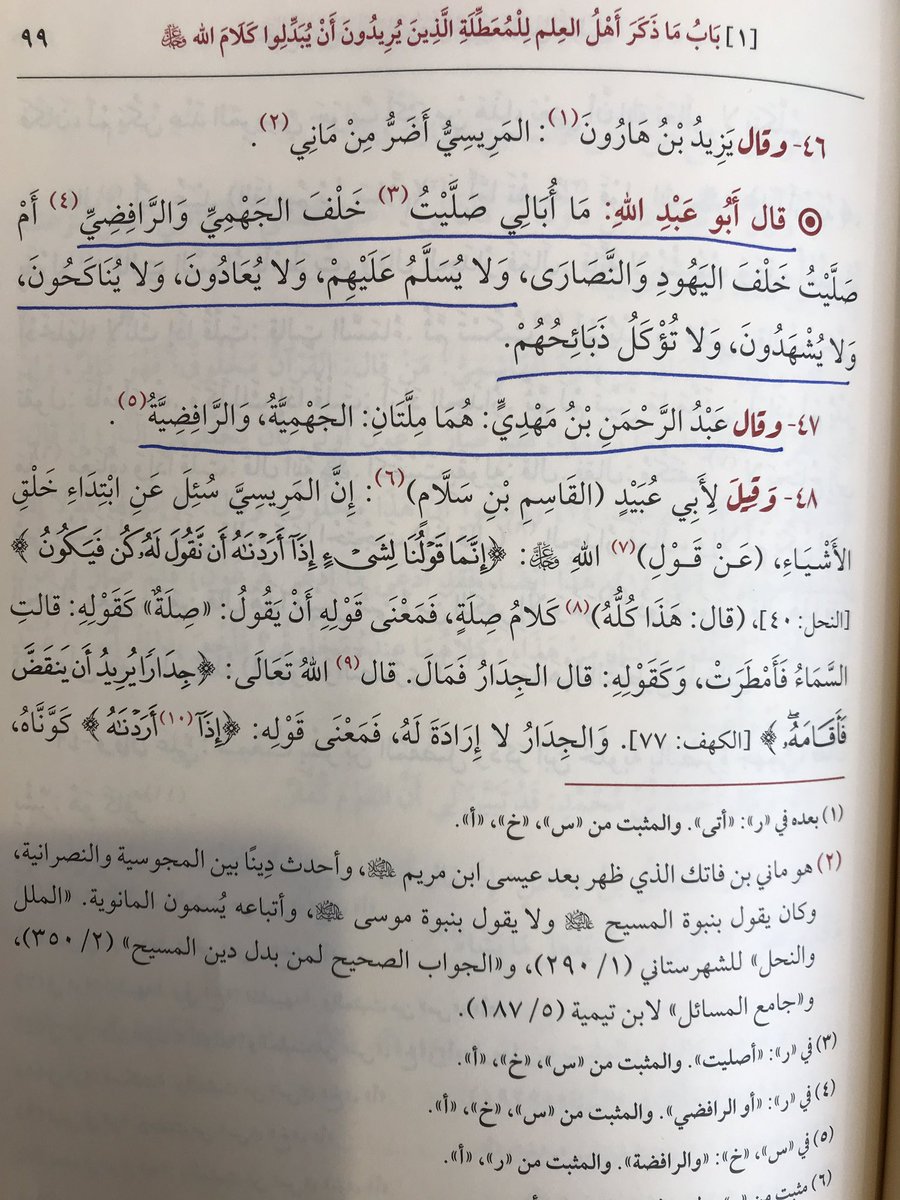 [١] بَابُ مَا ذَكَرَ أَهْلُ العِلمِ لِلْمُعَطِّلَةِ الَّذِينَ يُرِيدُونَ أَنْ يُبَدِّلُوا كَلَامَ الله ﷿ ٩٩
٤٦- وقال يَزِيدُ بْنُ هَارُونَ(١): المَرِيسِيُّ أَضَرُّ مِنْ مَانِي(٢).
قال أَبُو عَبْدِ اللهِ: مَا أُبَالِي صَلَّيْتُ(٣) خَلْفَ الجَهْمِيِّ وَالرَّافِضِيِّ(٤) أَمْ
صَلَّيْتُ خَلْفَ اليَهُودِ وَالنَّصَارَى، وَلا يُسَلَّمُ عَلَيْهِمْ، وَلا يُعَادُونَ، وَلا يُنَاكَحُونَ،
وَلا يُشْهَدُونَ، وَلا تُؤْكَلُ ذَبَائِحُهُمْ.
٤٧- وقال عَبْدُ الرَّحْمَنِ بْنُ مَهْدِيٍّ: هُمَا مِلَّتَانِ: الجَهْمِيَّةُ، وَالرَّافِضِيَّةُ(٥).
٤٨- وَقِيلَ لِأَبِي عُبَيْدٍ (القَاسِمِ بْنِ سَلَّامٍ)(٦): إِنَّ المَرِيسِيَّ سُئِلَ عَنِ ابْتِدَاءِ خَلْقِ
الأَشْيَاءِ، (عَنْ قَوْلِ)(٧) اللهِ ﷿: ﴿إِنَّمَا قَوْلُنَا لِشَىْءٍ إِذَآ أَرَدْنَٰهُ أَن نَّقُولَ لَهُۥ كُن فَيَكُونُ﴾
[النحل: ٤٠]، (قال: هَذَا كُلُّهُ)(٨) كَلامُ صِلَةٍ، فَمَعْنَى قَوْلِهِ أَنْ يَقُولُ: «صِلَةٌ» كَقَوْلِهِ: قالتِ
السَّمَاءُ فَأَمْطَرَتْ، وَكَقَوْلِهِ: قال الجِدَارُ فَمَالَ. قال(٩) اللهُ تَعَالَى: ﴿جِدَارًا يُرِيدُ أَن يَنقَضَّ
فَأَقَامَهُۥ﴾ [الكهف: ٧٧]. وَالجِدَارُ لا إِرَادَةَ لَهُ، فَمَعْنَى قَوْلِهِ: ﴿إِذَآ(١٠) أَرَدْنَٰهُ﴾ كَوَّنَّاهُ،
(١) بعده في «ر»: «أتى». والمثبت من «س»، «خ»، «أ».
(٢) هو ماني بن فاتك الذي ظهر بعد عيسى ابن مريم ﵇، وأحدث دِينًا بين المجوسية والنصرانية،
وكان يقول بنبوة المسيح ﵇ ولا يقول بنبوة موسى ﵇، وأتباعه يُسمون المانوية. «الملل
والنحل» للشهرستاني (١/ ٢٩٠)، و«الجواب الصحيح لمن بدل دين المسيح» (٢/ ٣٥٠)،
و«جامع المسائل» لابن تيمية (٥/ ١٨٧).
(٣) في «ر»: «أصليت». والمثبت من «س»، «خ»، «أ».
(٤) في «ر»: «أو الرافضي». والمثبت من «س»، «خ»، «أ».
(٥) في «س»، «خ»: «والرافضة». والمثبت من «ر»، «أ».
(٦) مثبت من